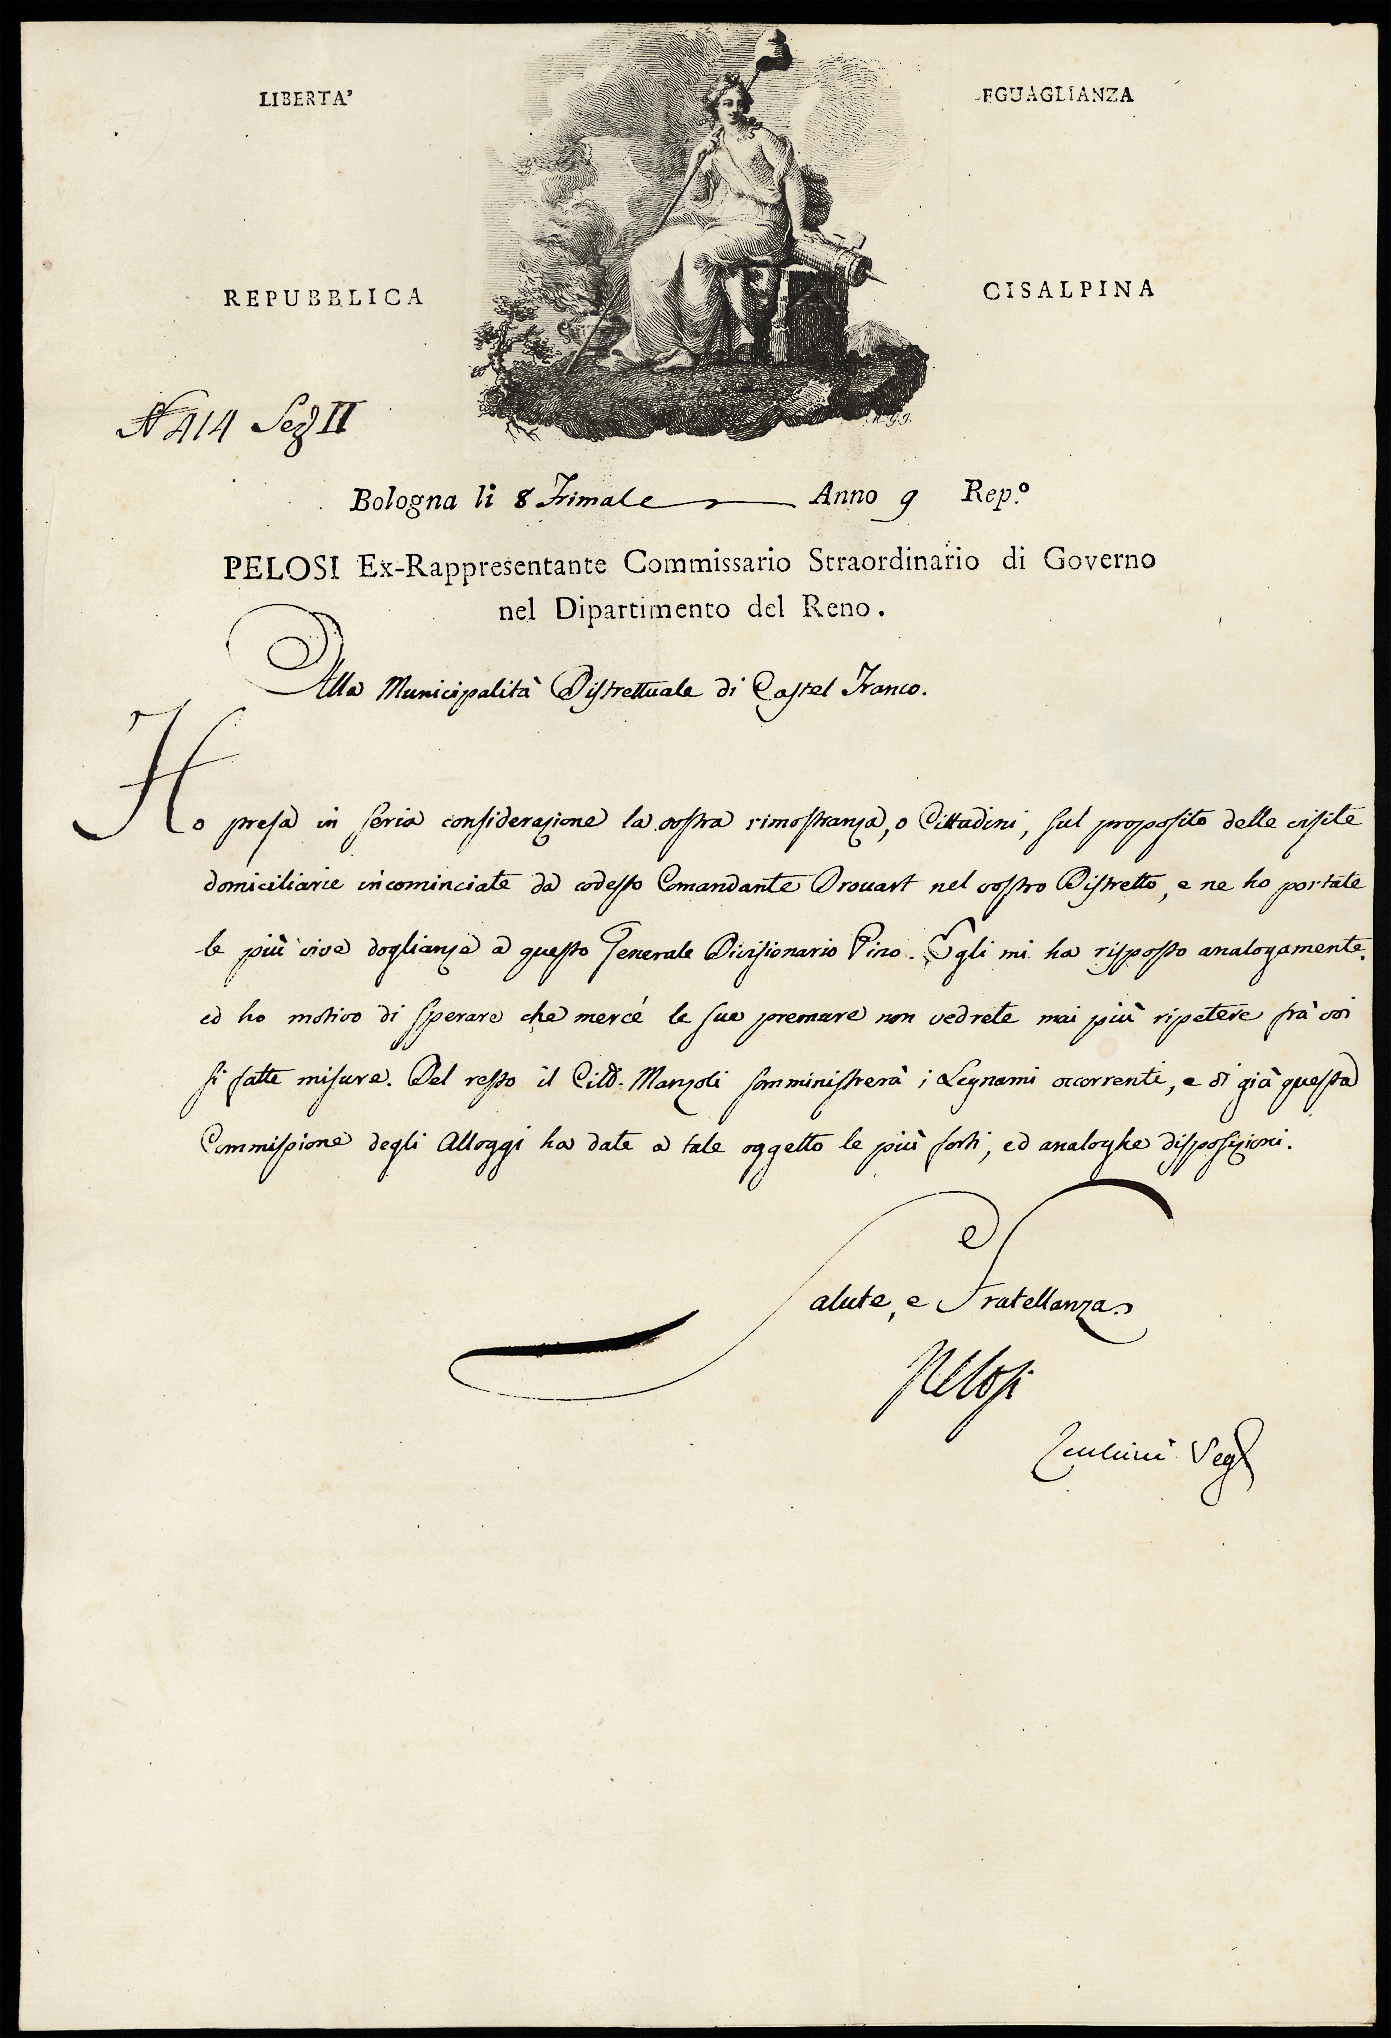 LIBERTA'
EGUAGLIANZA
REPUBBLICA
CISALPINA
N 414 Sez II
Bologna li 8 Frimale Anno 9 Rep.º
PELOSI Ex-Rappresentante Commissario Straordinario di Governo
nel Dipartimento del Reno.
Alla Municipalità Distrettuale di Castel Franco.
Ho presa in seria considerazione la vostra rimostranza, o Cittadini, sul proposito delle visite
domiciliarie incominciate da codesto Comandante Drouart nel vostro Distretto, e ne ho portate
le più vive doglianze a questo Generale Divisionario Pino. Egli mi ha risposto analogamente.
ed ho motivo di sperare che mercé le sue premure non vedrete mai più ripetere frà voi
si fatte misure. Del resto il Citt. Manzoli somministrerà i Legnami occorrenti, e di già questa
Commissione degli Alloggi ha date a tale oggetto le più forti, ed analoghe disposizioni.
Salute, e Fratellanza
Pelosi
Seg